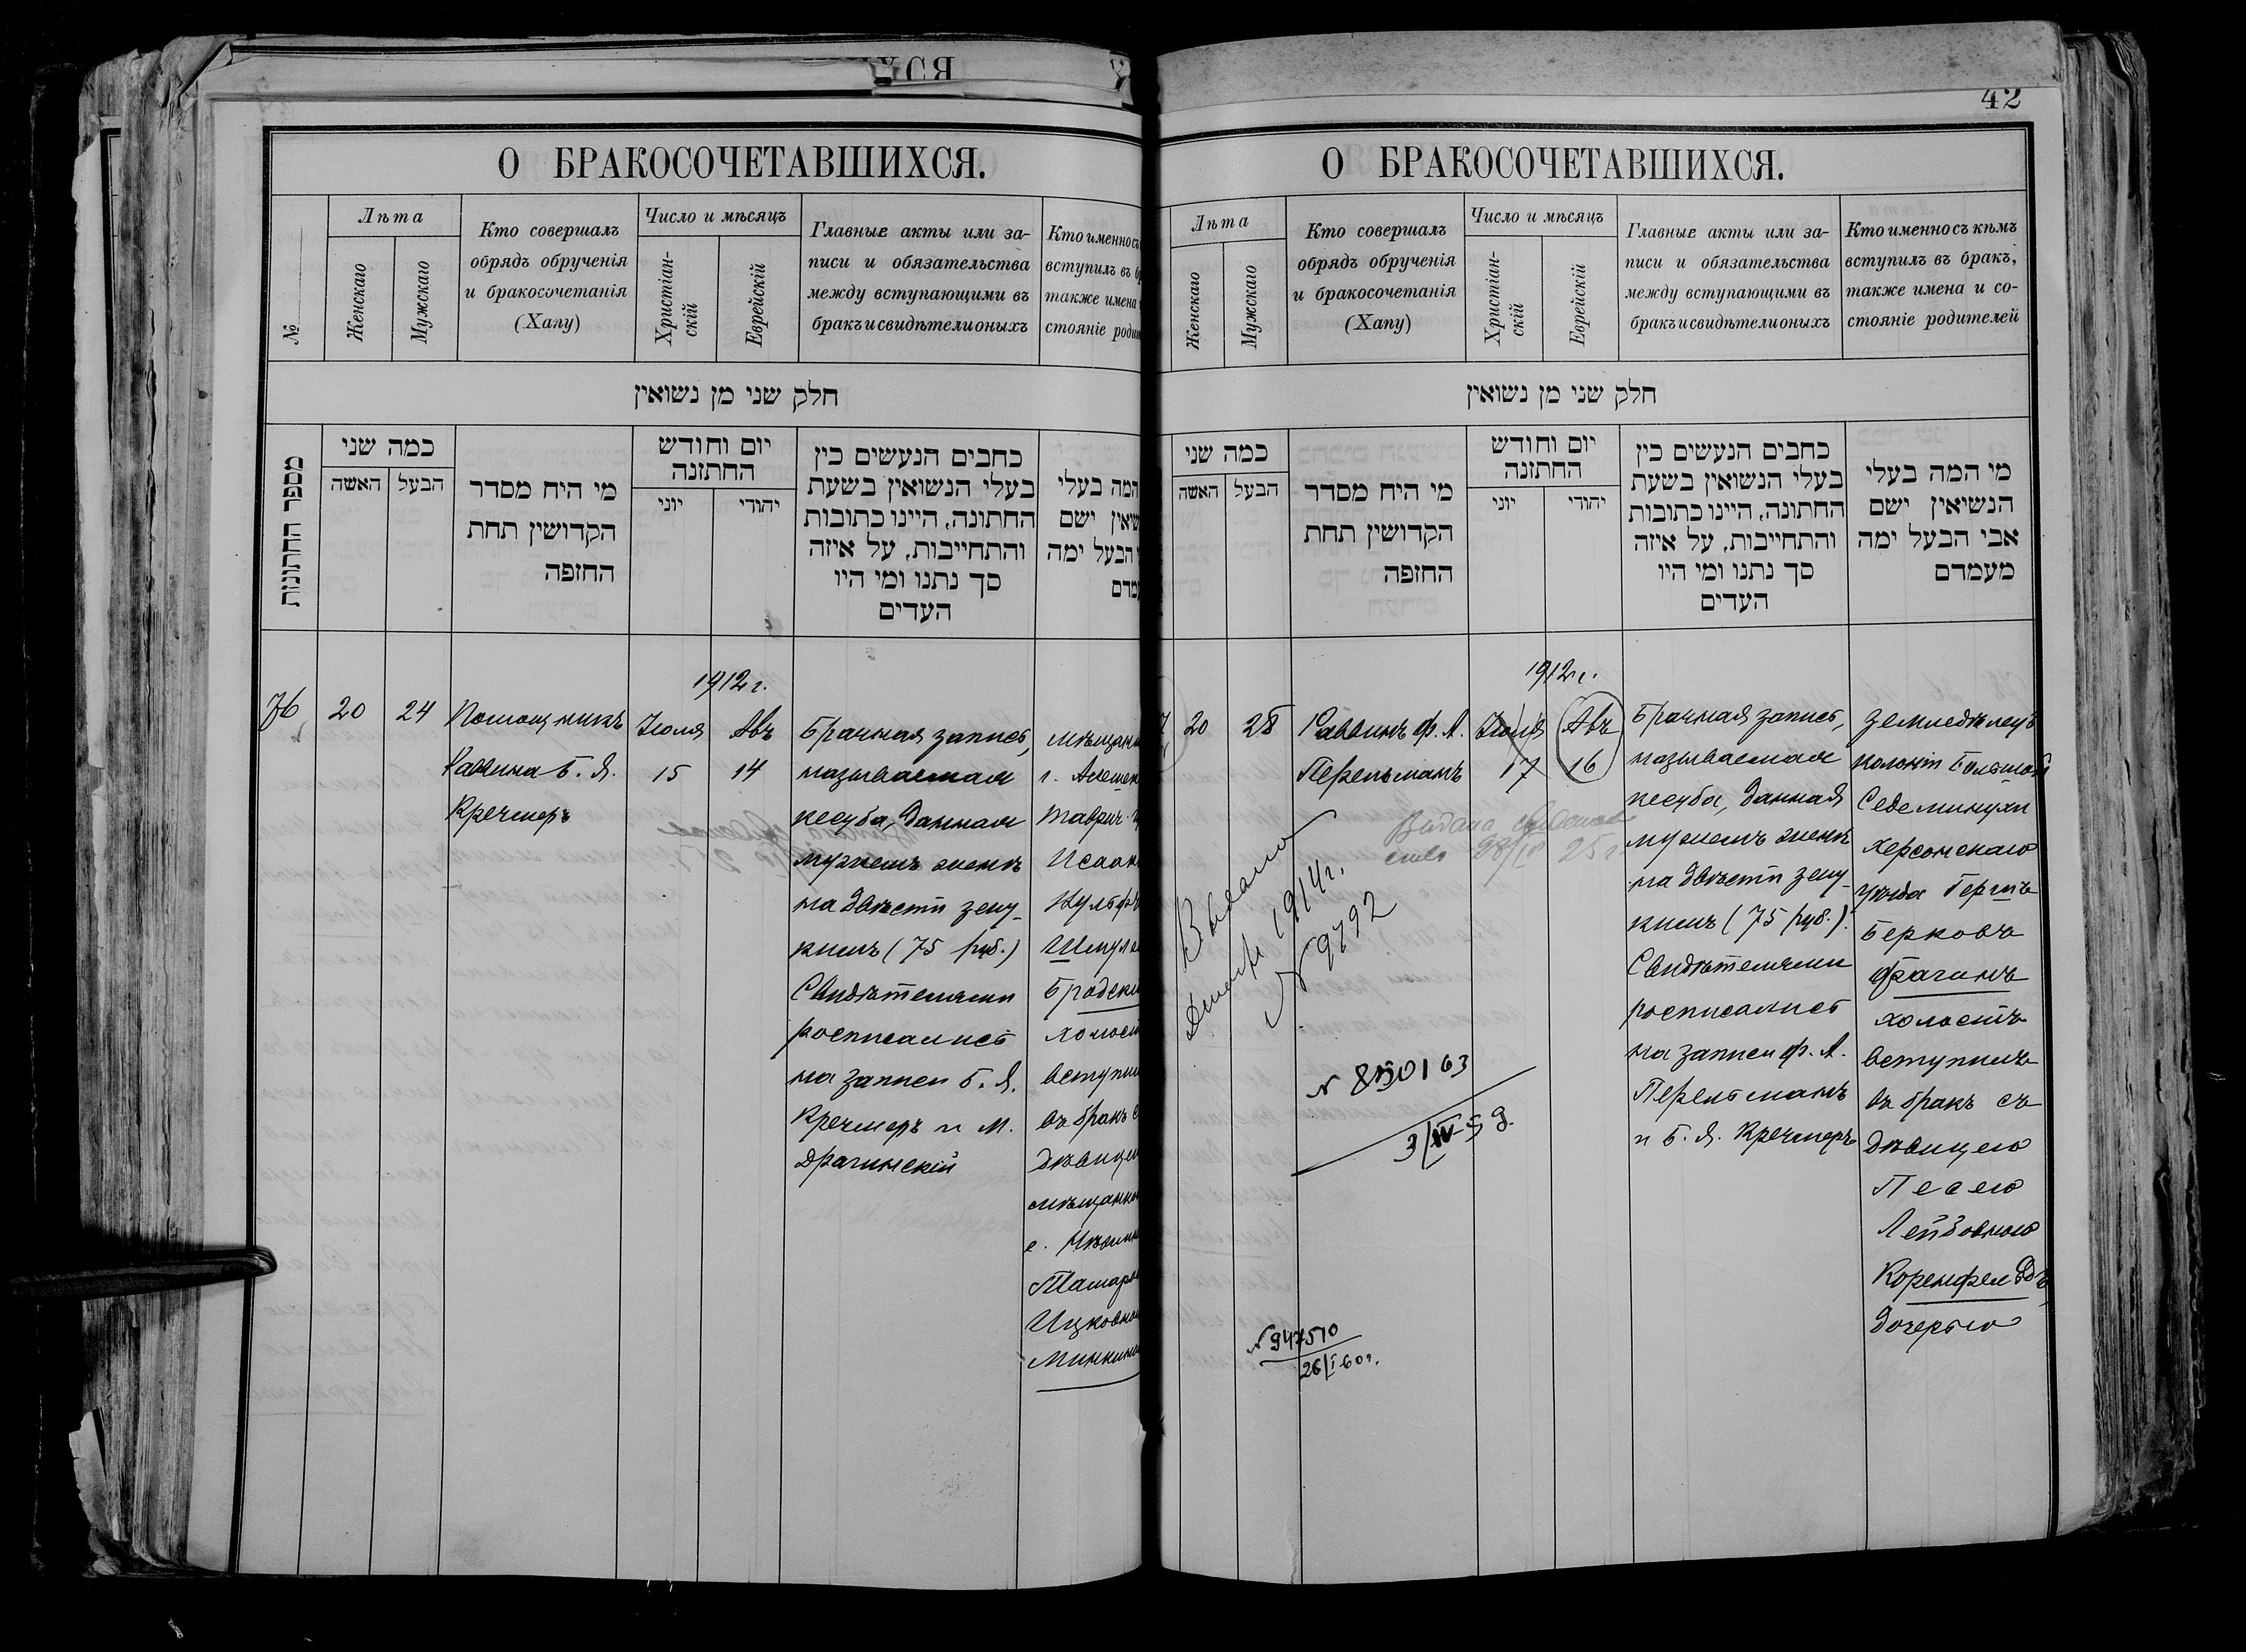 О БРАКОСОЧЕТАВШИХСЯ.
№
Лѣта
Женскаго
Мужскаго
Кто совершалъ
обрядъ обрученія
и бракосочетанія
(Хапу)
Число и мѣсяцъ
Христіан-
скій
Еврейскій
Главные акты или за-
писи и обязательства
между вступающими въ
бракъ и свидѣтели оныхъ
Кто именно съ
вступилъ въ
также имена
стояніе
חלק שני מן נשואין
מספר החתונות
כמה שני
האשה
הבעל
מי היח מסדר
הקדושין תחת
החזפה
יום וחודש
החתזנה
יוני
יהודי
כחבים הנעשים כין
בעלי הנשואין בשעת
החתונה, היינו כתובות
והתחייבות, על איזה
סך נתנו ומי היו
העדים
המה בעלי
ישם
הבעל ימה
76
20
24
Помощникъ
Раввина Б. Я.
Кречмеръ
1912 г.
Іюля
15
Авъ
14
Брачная запись,
называемая
кесуба, данная
мужемъ женѣ
на двѣсти зеку-
кимъ (75 руб.)
Свидѣтелями
росписались
на записи Б. Я.
Кречмеръ и М.
Драгинскій
г.
Таврич.
Исаак
Шмул
Бродски
холост
вступи
въ бракъ
дѣвице
мѣщанко
Ицковно
42
О БРАКОСОЧЕТАВШИХСЯ.
Лѣта
Женскаго
Мужскаго
Кто совершалъ
обрядъ обрученія
и бракосочетанія
(Хапу)
Число и мѣсяцъ
Христіан-
скій
Еврейскій
Главные акты или за-
писи и обязательства
между вступающими въ
бракъ и свидѣтели оныхъ
Кто именно съ кѣмъ
вступилъ въ бракъ,
также имена и со-
стояніе родителей
חלק שני מן נשואין
כמה שני
האשה
הבעל
מי היח מסדר
הקדושין תחת
החזפה
יום וחודש
החתזנה
יוני
יהודי
כחבים הנעשים כין
בעלי הנשואין בשעת
החתונה, היינו כתובות
והתחייבות, על איזה
סך נתנו ומי היו
העדים
מי המה בעלי
הנשיאין ישם
אבי הבעל ימה
מעמדם
7
20
28
Раввинъ Ф. А.
Перельманъ
1912 г.
Іюля
17
Авъ
16
Брачная запись,
называемая
кесуба, данная
мужемъ женѣ
на двѣсти зеку-
кимъ (75 руб.).
Свидѣтелями
росписались
на записи Ф. А.
Перельманъ
и Б. Я. Кречмеръ
земледѣлецъ
колоніи Большой
Седеминухи
Херсонскаго
уѣзда Гершъ
Берковъ
Фрагинъ
холостъ
вступилъ
въ бракъ съ
дѣвицею
Песею
Лейбовною
Коренфельдъ,
дочерью
1914 г.
№ 9792
Выдана
28/IV 25 г.
3/IV-59.
№ 947510
26/I 60 г.